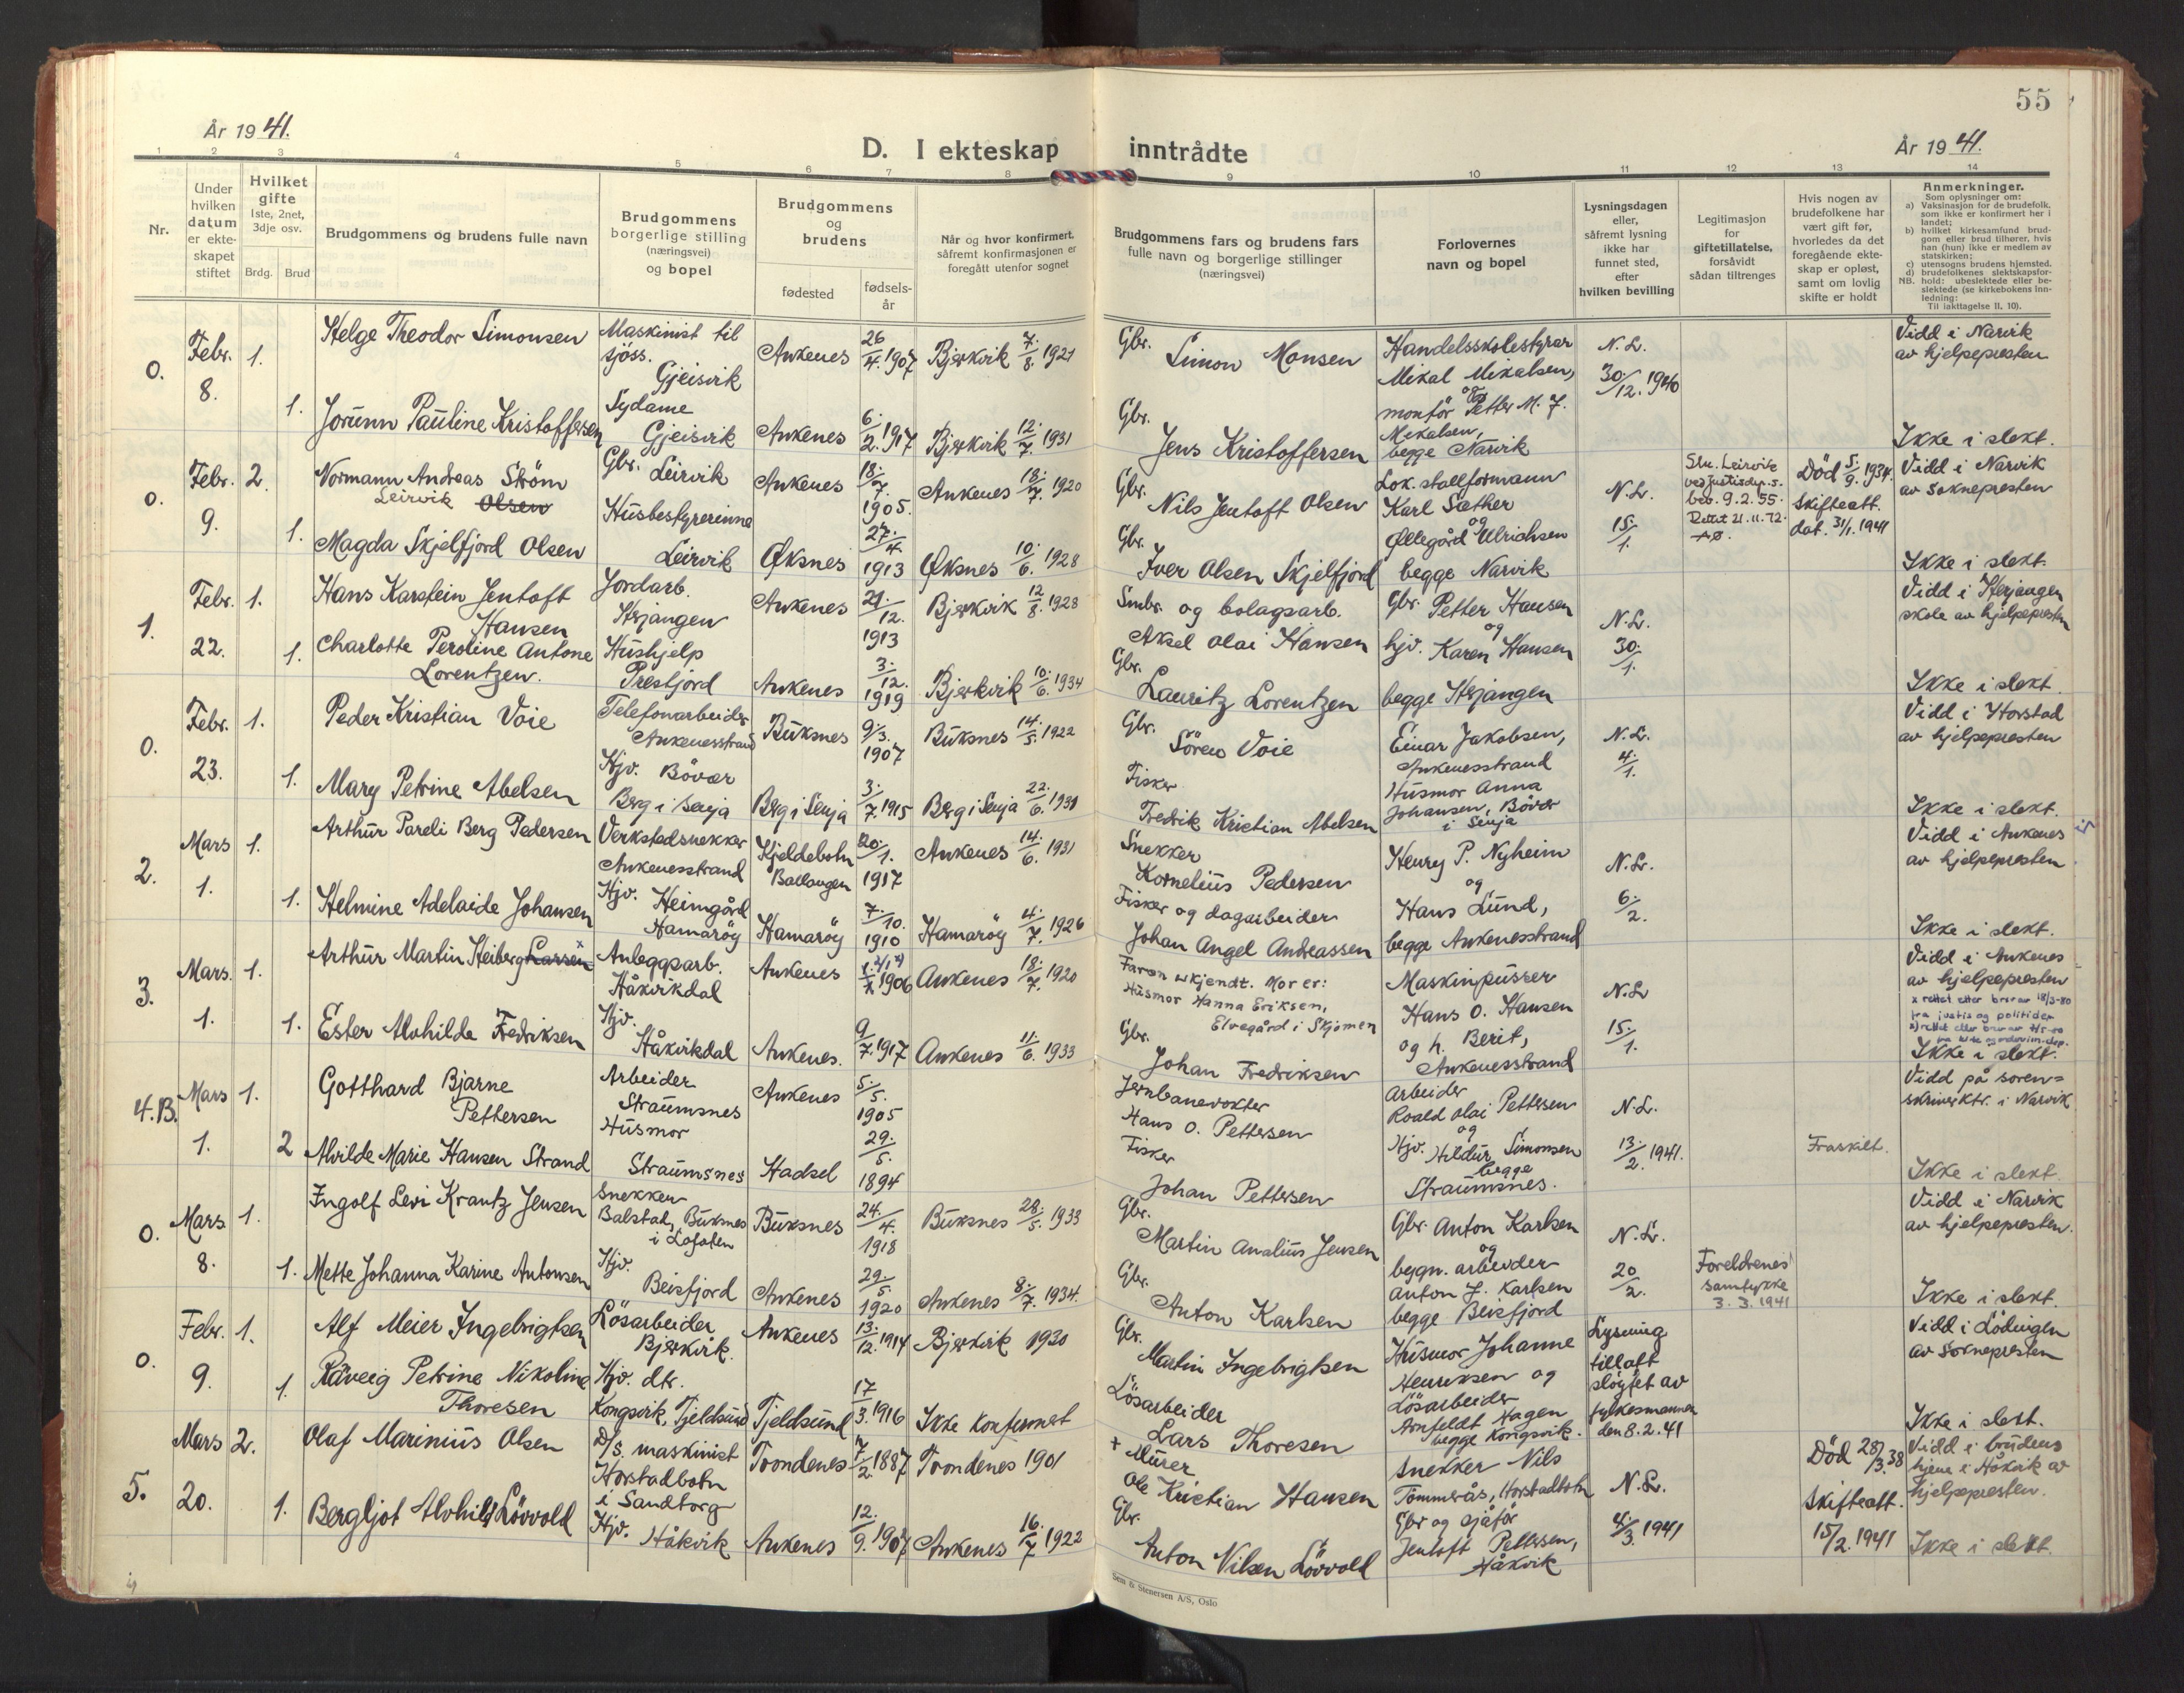 55
År 1941.
År 1941.
D. I ekteskap inntrådte
1 2 3 4 5 6 7 8 9 10 11 12 13 14
Nr.
Under hvilken datum er ekte-skapet stiftet
Hvilket gifte
1ste, 2net, 3dje osv.
Brdg. Brud
Brudgommens og brudens fulle navn
Brudgommens borgerlige stilling (næringsvei) og bopel
Brudgommens og brudens
fødested
fødsels-år
Når og hvor konfirmert, såfremt konfirmasjonen er foregått utenfor sognet
Brudgommens fars og brudens fars fulle navn og borgerlige stillinger (næringsvei)
Forlovernes navn og bopel
Lysningsdagen eller, såfremt lysning ikke har funnet sted, efter hvilken bevilling
Legitimasjon for giftetillatelse, forsåvidt sådan tiltrenges
Hvis nogen av brudefolkene har vært gift før, hvorledes da det foregående ekte-skap er opløst, samt om lovlig skifte er holdt
Anmerkninger.
Som oplysninger om:
a) Vaksinasjon for de brudefolk, som ikke er konfirmert her i landet;
b) hvilket kirkesamfund brud-gom eller brud tilhører, hvis han (hun) ikke er medlem av statskirken;
c) utensogns brudens hjemsted.
d) brudefolkenes slektskapsfor-hold: ubeslektede eller be-slektede (se kirkebokens Inn-ledning:
NB.
Til iakttagelse II, 10).
0. Febr. 8. 1. Helge Theodor Simonsen
Maskinist til sjöss. Gjeisvik
Ankenes 26/4. 1907 Bjerkvik 7./8. 1921
Gbr. Simon Monsen
Handelsskolestyrar Mikal Mikalsen, og montör Petter M. J. Mikalsen, begge Narvik
N.L. 30./12. 1940
Vidd i Narvik av hjelpepresten
1. Jorunn Pauline Kristoffersen
Sydame Gjeisvik
Ankenes 6./2. 1917 Bjerkvik 12./7. 1931
Gbr. Jens Kristoffersen
Ikke i slekt.
0. Febr. 9. 2. Normann Andreas Ström Leirvik Olsen
Gbr. Leirvik
Ankenes 18./7. 1905. Ankenes 18./7. 1920
Gbr. Nils Jentoft Olsen
Lok. stallformann Karl Sæther og Öllegård Ulrichsen begge Narvik
N.L. 15./1.
Sln. Leirvik ved justisdep. s. bev. 9.2.55. Rettet 21.11.72. AØ.
Död 5/9. 1934. Skifteatt. dat. 31/1. 1941
Vidd i Narvik av soknepresten
1. Magda Skjelfjord Olsen
Husbestyrerinne Leirvik
Øksnes 27./4. 1913 Øksnes 10./6. 1928
Gbr. Iver Olsen Skjelfjord
Ikke i slekt.
1. Febr. 22. 1. Hans Karstein Jentoft Hansen
Jordarb. Herjangen
Ankenes 21./12. 1913 Bjerkvik 12/8. 1928
Smbr. og bolagsarb. Aksel Olai Hansen
Gbr. Petter Hansen og hjv. Karen Hansen begge Herjangen
N.L. 30./1.
Vidd i Herjangen skole av hjelpepresten
1. Charlotte Peroline Antone Lorentzen.
Hushjelp Prestjord
Ankenes 3./12. 1919 Bjerkvik 10./6. 1934
Gbr. Lauritz Lorentzen
Ikke i slekt.
0. Febr. 23. 1. Peder Kristian Voie
Telefonarbeider Ankenesstrand
Buksnes 9./3. 1907 Buksnes 14./5. 1922
Gbr. Sören Voie
Einar Jakobsen, Ankenesstrand Husmor Anna Johansen, Bövær i Senja
N.L. 4./1.
Vidd i Harstad av hjelpepresten
1. Mary Petrine Abelsen
Hjv. Bövær Berg i Senja
Berg i Senja 3./7. 1915 Berg i Senja 22./6. 1930
Fisker Fredrik Kristian Abelsen
Ikke i slekt.
2. Mars 1. 1. Arthur Pareli Berg Pedersen
Verkstedsnekker Ankenesstrand
Kjeldebotn Ballangen 20./1. 1917 Ankenes 14./6. 1931
Snekker Kornelius Pedersen
Henry P. Nyheim og Hans Lund, begge Ankenesstrand
N.L. 6./2.
Vidd i Ankenes av hjelpepresten
1. Helmine Adelaide Johansen
Hjv. Heimgård Hamaröy
Hamaröy 7./10. 1910 Hamaröy 4./7. 1926
Fisker og dagarbeider Johan Angel Andreassen
Ikke i slekt.
3. Mars. 1. 1. Arthur Martin Heiberg Larsen x
Anleggsarb. Håkvikdal
Ankenes 1906 Ankenes 18./7. 1920
Faren ukjendt. Mor er: Husmor Hanna Eriksen, Elvegård i Skjomen
Maskinpusser Hans O. Hansen og h. Berit, Ankenesstrand
N.L. 15./1.
Vidd i Ankenes av hjelpepresten
x rettet etter brev av 18/3-80 fra justis og politidep.
1. Ester Alvhilde Fredriksen
Hjv. Håkvikdal
Ankenes. 9/7. 1917 Ankenes 11./6. 1933
Gbr. Johan Fredriksen
Ikke i slekt.
4.B. Mars 1. 1. Gotthard Bjarne Pettersen
Arbeider Straumsnes
Ankenes 5./5. 1905
Jernbanevokter Hans O. Pettersen
Arbeider Roald Olai Pettersen og Hjv. Hildur Simonsen begge Straumsnes.
N.L. 13./2. 1941.
Vidd på soren=skriverktr. i Narvik
2 Alvilde Marie Hansen Strand
Husmor Straumsnes
Hadsel 29./5. 1894
Fisker Johan Pettersen
Fraskilt.
Ikke i slekt.
0. Mars 8. 1. Ingolf Levi Krantz Jensen
Snekker Balstad, Buksnes i Lofoten
Buksnes 24./4. 1918 Buksnes 28./5. 1933
Gbr. Martin Analius Jensen
Gbr. Anton Karlsen og bygn. arbeider Anton J. Karlsen begge Beisfjord
N.L. 20/2.
Foreldrenes samtykke 3.3.1941
Vidd i Narvik av hjelpepresten.
1. Mette Johanna Karine Antonsen
Hjv. Beisfjord
Ankenes 29./5. 1920 Ankenes 8./7. 1934.
Gbr. Anton Karlsen
Ikke i slekt.
0. Febr. 9. 1. Alf Meier Ingebrigtsen
Lösarbeider Bjerkvik.
Ankenes 13./12. 1914 Bjerkvik 1930
Gbr. Martin Ingebrigtsen
Husmor Johanne Henriksen og Lösarbeider Arnfeldt Hagen begge Kongsvik.
Lysning tillatt slöyfet av fylkesmannen den 8.2.41
Vidd i Lödingen av soknepresten
1. Råveig Petrine Nikoline Thoresen
Hjv. dtr. Kongsvik, Tjeldsund
Tjeldsund 17/3. 1916 Ikke konfirmert
Lösarbeider Lars Thoresen
Ikke i slekt.
5. Mars 20. 2. Olaf Marinius Olsen
D/S. maskinist Harstadbotn i Sandtorg
Trondenes 7/2. 1887 Trondenes 1901
+ Murer Ole Kristian Hansen
Snekker Nils Tömmerås, Harstadbotn Gbr og sjåför Jentoft Pettersen, Håkvik
N.L. 4./3. 1941
Död 28/3. 38 Skifteatt. 15/2. 1941
Vidd i brudens hjem i Håkvik av hjelpepresten.
1. Bergljot Alvhild Lövvold
Hjv. Håkvik
Ankenes 12./9. 1907 Ankenes 16./7 1922
Gbr. Anton Nilsen Lövvold
Ikke i slekt.
Sem & Stenersen A/S, Oslo